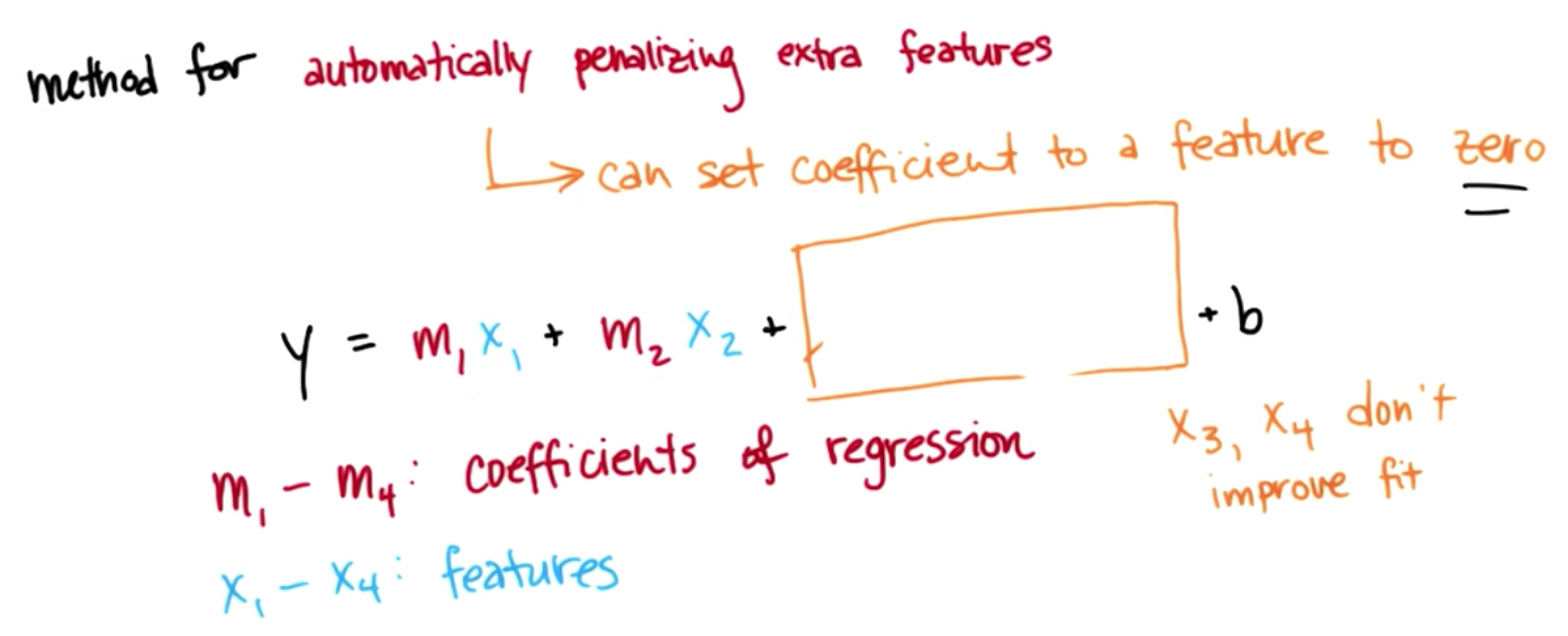 method for automatically penalizing extra features
can set coefficient to a feature to zero
y = m₁x₁ + m₂x₂ + + b
x₃, x₄ don't
improve fit
m₁ – m₄: coefficients of regression
x₁ – x₄: features